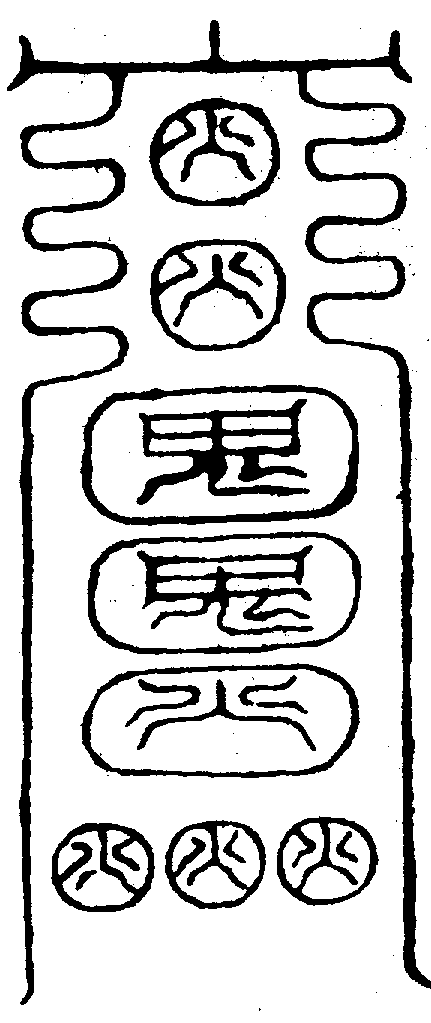 火
火
鬼
鬼
火
火火火